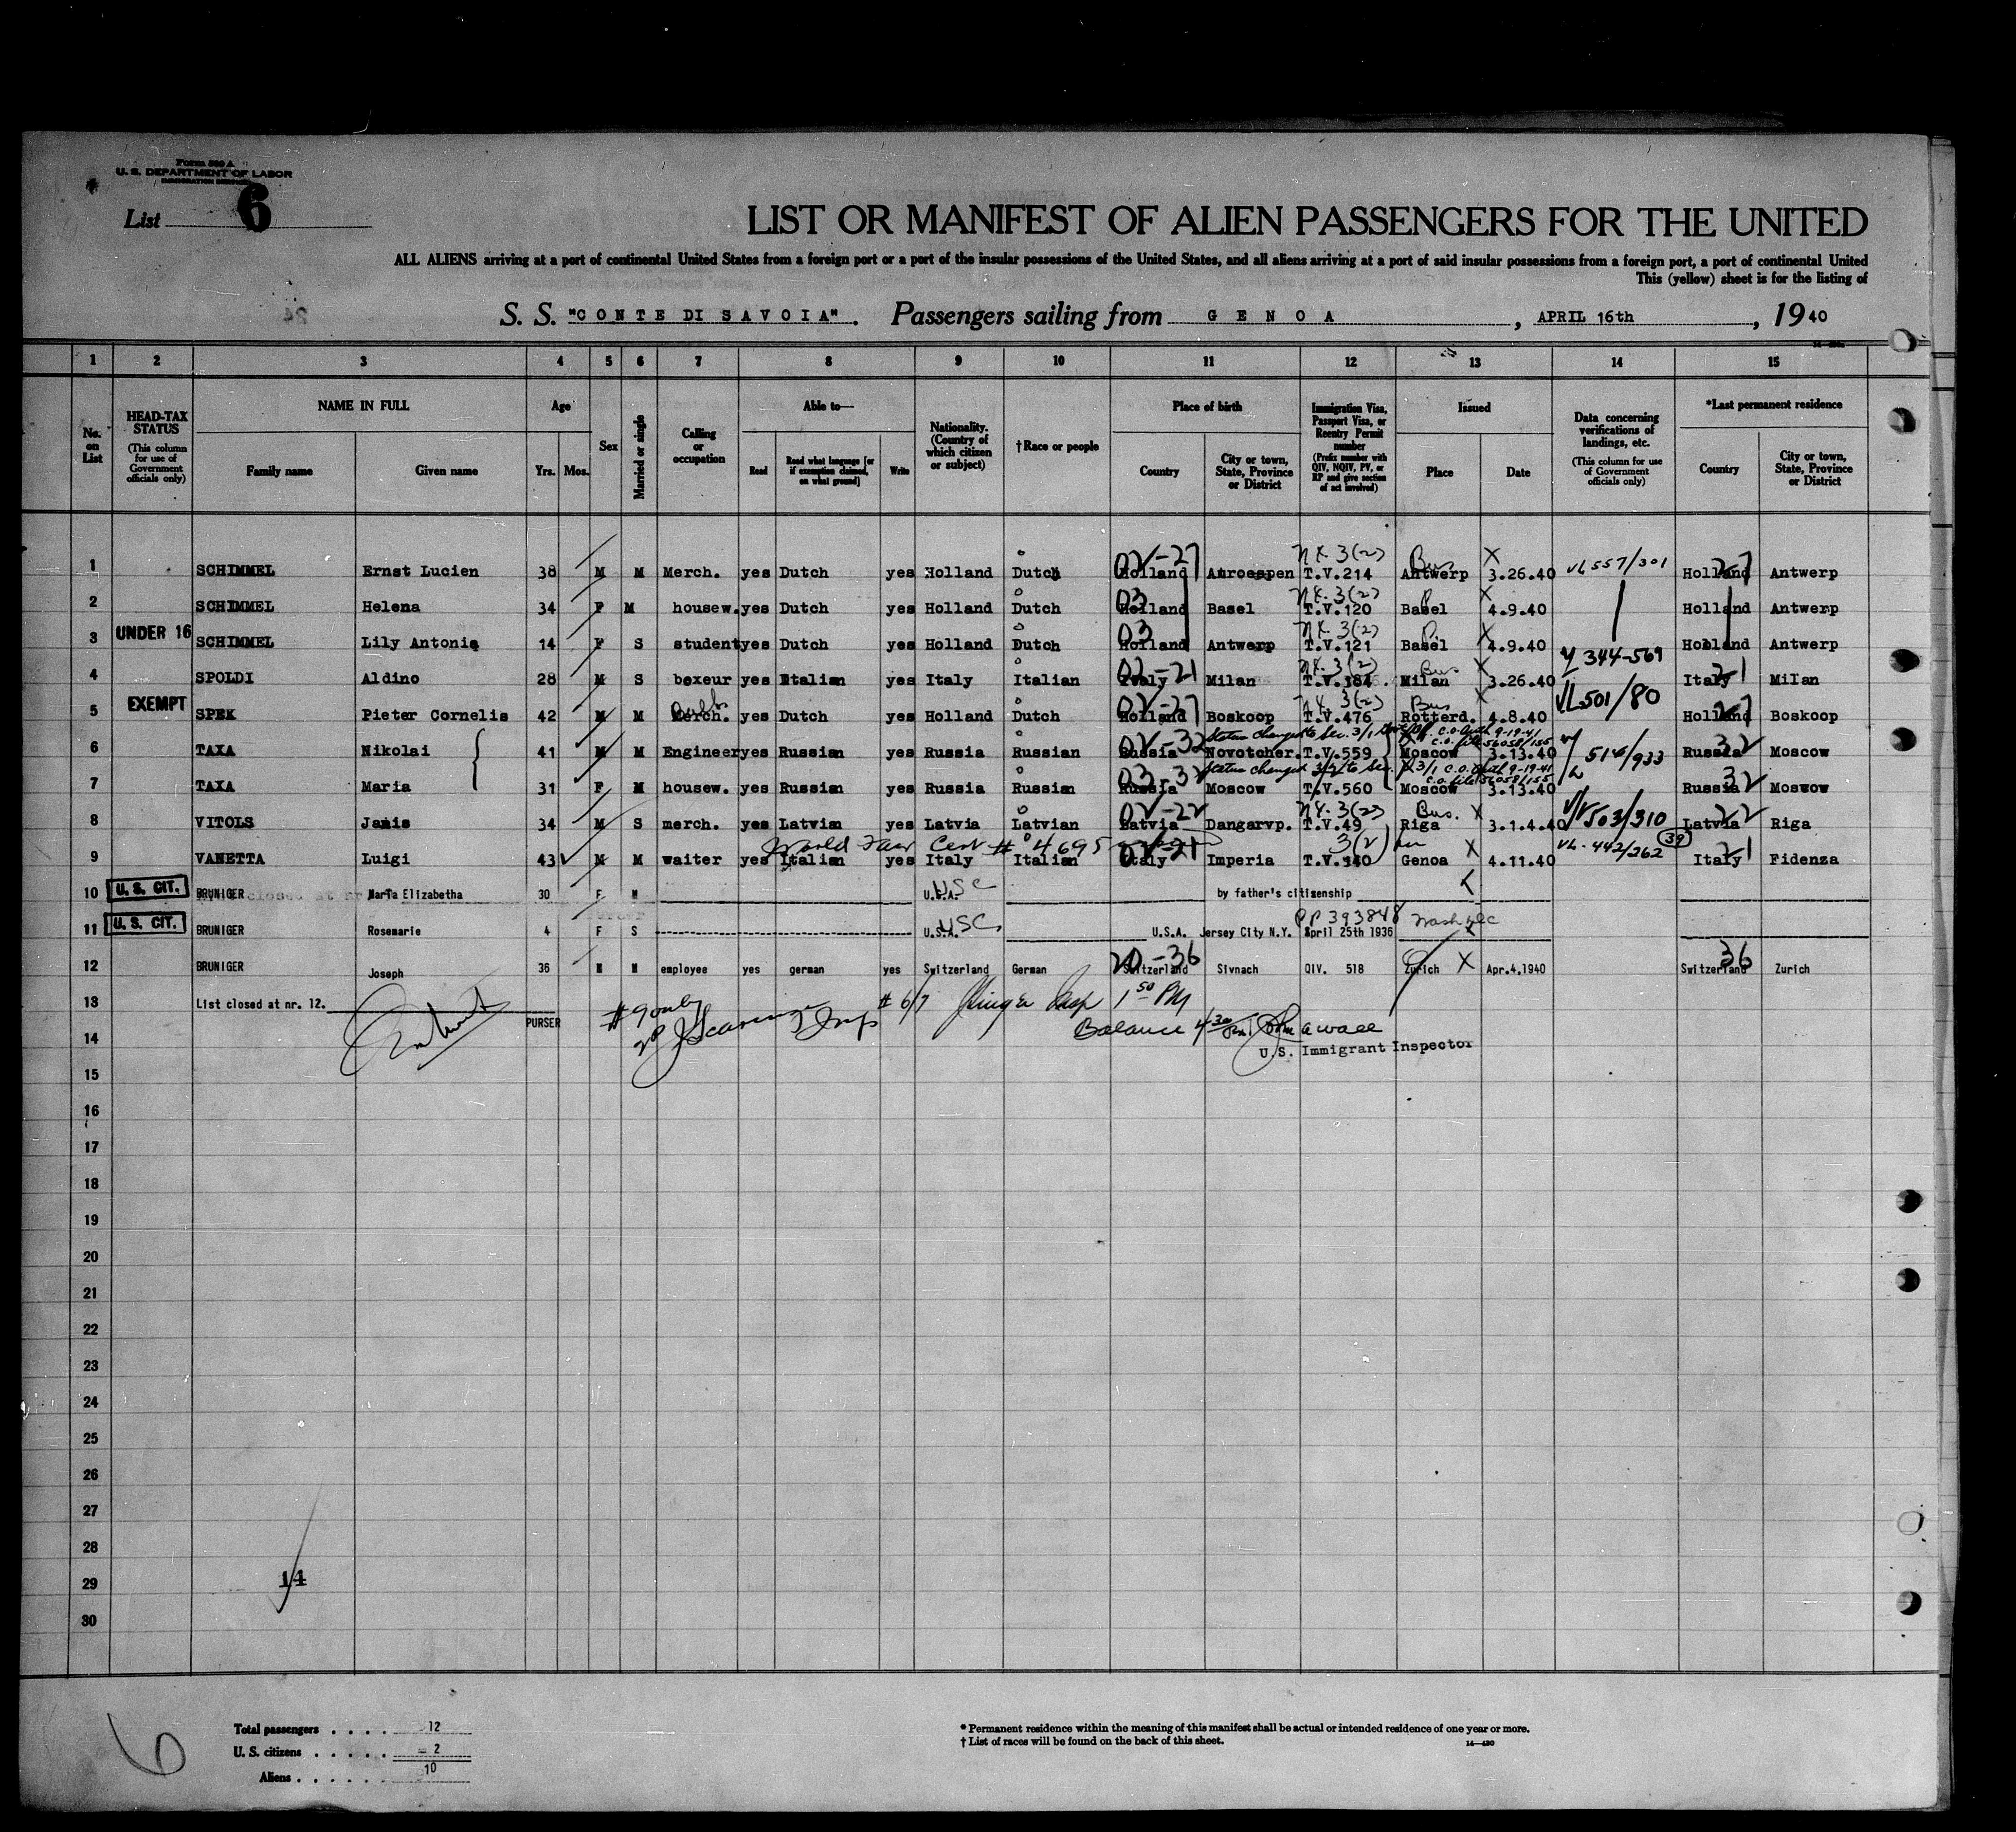 Form 500 A
U. S. DEPARTMENT OF LABOR
IMMIGRATION SERVICE
List 6
LIST OR MANIFEST OF ALIEN PASSENGERS FOR THE UNITED
ALL ALIENS arriving at a port of continental United States from a foreign port or a port of the insular possessions of the United States, and all aliens arriving at a port of said insular possessions from a foreign port, a port of continental United
This (yellow) sheet is for the listing of
S. S. "CONTE DI SAVOIA". Passengers sailing from GENOA, APRIL 16th, 1940
1 2 3 4 5 6 7 8 9 10 11 12 13 14 15
No. on List
HEAD-TAX STATUS (This column for use of Government officials only)
NAME IN FULL Family name Given name
Age Yrs. Mos.
Sex
Married or single
Calling or occupation
Able to— Read Read what language [or if exemption claimed, on what ground] Write
Nationality. (Country of which citizen or subject)
†Race or people
Place of birth Country City or town, State, Province or District
Immigration Visa, Passport Visa, or Reentry Permit number (Prefix number with QIV, NQIV, PV, or RP and give section of act involved)
Issued Place Date
Data concerning verifications of landings, etc. (This column for use of Government officials only)
*Last permanent residence Country City or town, State, Province or District
02-27 NX. 3(2) Bus X VL 557/301 27
1 SCHIMMEL Ernst Lucien 38 M M Merch. yes Dutch yes Holland Dutch Holland T.V.214 Antwerp 3.26.40 Holland Antwerp
03 NX. 3(2) P X
2 SCHIMMEL Helena 34 F M housew. yes Dutch yes Holland Dutch Holland Basel T.V.120 Basel 4.9.40 Holland Antwerp
03 NX. 3(2) P. X
3 UNDER 16 SCHIMMEL Lily Antonia 14 F S student yes Dutch yes Holland Dutch Holland Antwerp T.V.121 Basel 4.9.40 Holland Antwerp
02-21 NX. 3(2) Bus X 344-569 21
4 SPOLDI Aldino 28 M S boxeur yes Italian yes Italy Italian Italy Milan T.V.384 Milan 3.26.40 Italy Milan
Bulbs 02-27 NX. 3(2) Bus X VL501/80 27
5 EXEMPT SPEK Pieter Cornelis 42 M M Merch. yes Dutch yes Holland Dutch Holland Boskoop T.V.476 Rotterd. 4.8.40 Holland Boskoop
02-32 Status changed to Sec. 3/1 C.O. Auth 9-19-41 C.O. file 56058/155 516/933 32
6 TAXA Nikolai 41 M M Engineer yes Russian yes Russia Russian Russia Novotcher. T.V.559 Moscow 3.13.40 Russia Moscow
03-32 Status changed 3/2 to Sec. 3/1 C.O. Auth 9-19-41 C.O. file 56058/155 32
7 TAXA Maria 31 F M housew. yes Russian yes Russia Russian Russia Moscow T.V.560 Moscow 3.13.40 Russia Moswow
02-22 NX. 3(2) Bus. X 503/310 22
8 VITOLS Janis 34 M S merch. yes Latvian yes Latvia Latvian Latvia Dangarvp. T.V.49 Riga 3.1.4.40 Latvia Riga
World Fair Cert # 4695 02-21 3(2) X VL. 442/262 39 21
9 VANETTA Luigi 43 M M waiter yes Italian yes Italy Italian Italy Imperia T.V.340 Genoa 4.11.40 Italy Fidenza
10 U. S. CIT. BRUNIGER Maria Elizabetha 30 F M U.S.A. USC by father's citizenship X
PP 393848 Wash DC
11 U. S. CIT. BRUNIGER Rosemarie 4 F S U.S.A. USC U.S.A. Jersey City N.Y. April 25th 1936
20-36 X 36
12 BRUNIGER Joseph 36 M M employee yes german yes Switzerland German Switzerland Sivnach QIV. 518 Zurich Apr.4,1940 Switzerland Zurich
13 List closed at nr. 12. # 9 only # 6/7 Insp 1 50 PM
PURSER
14 Balance 4 30 pm
U.S. Immigrant Inspector
15
16
17
18
19
20
21
22
23
24
25
26
27
28
29
14
30
6
Total passengers . . . . 12
U. S. citizens . . . . . - 2
Aliens . . . . . . 10
* Permanent residence within the meaning of this manifest shall be actual or intended residence of one year or more.
† List of races will be found on the back of this sheet. 14—430